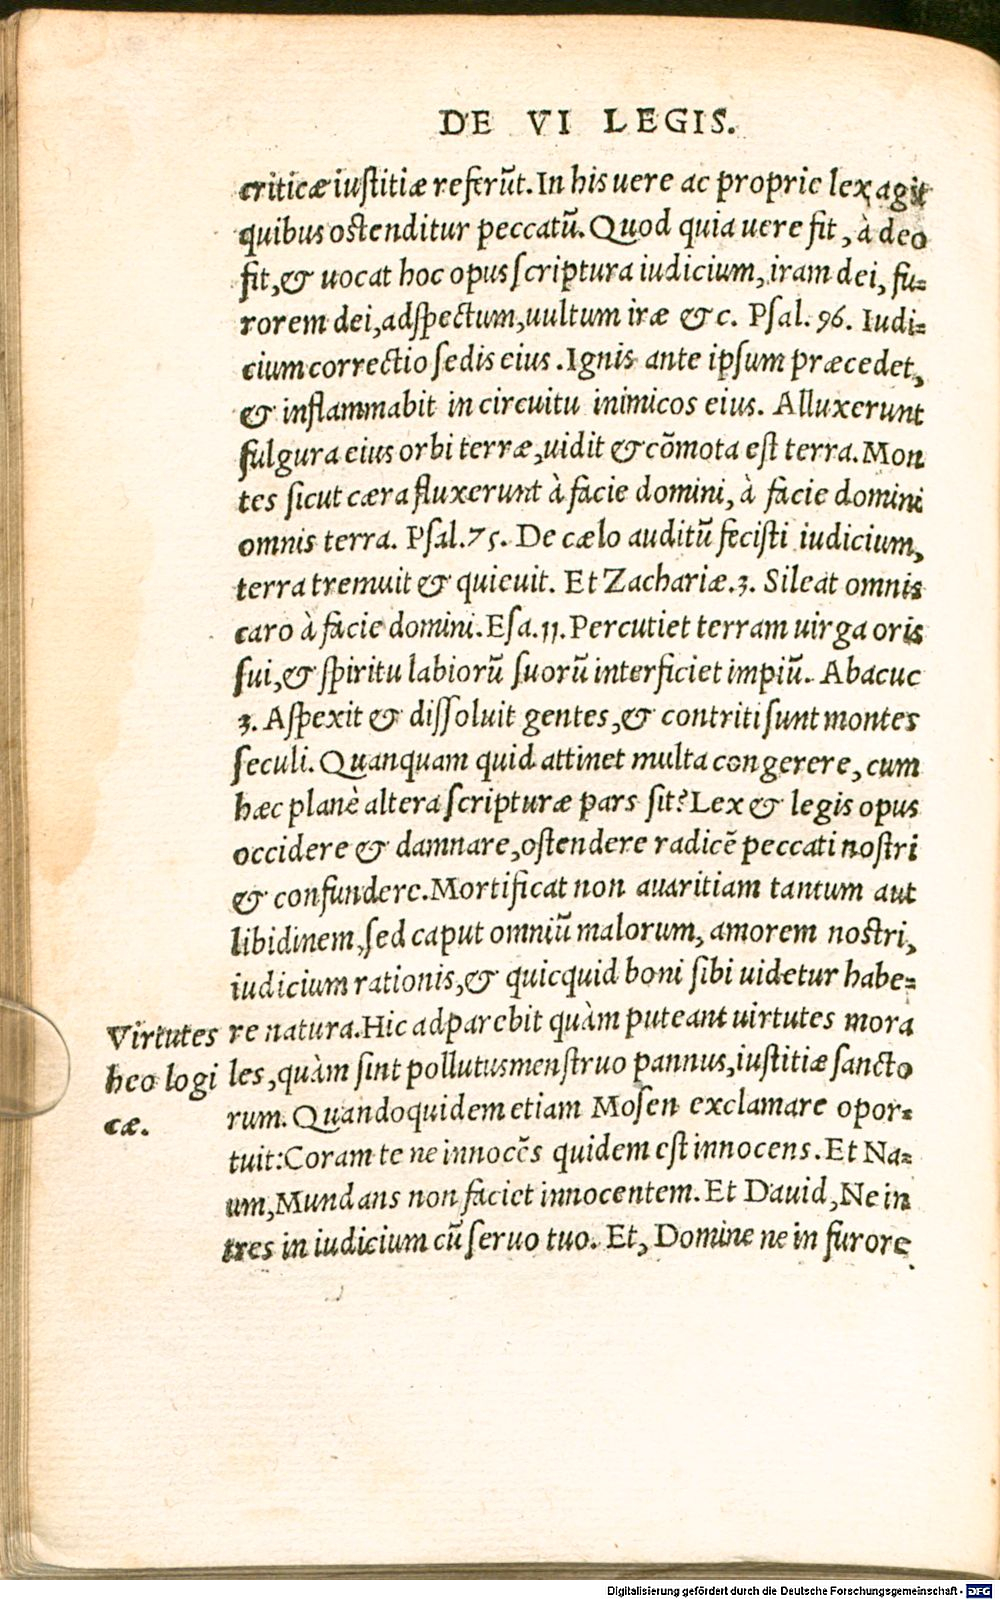 DE VI LEGIS.
criticæ iuſtitiæ referūt. In his uere ac proprie lex agit
quibus oſtenditur peccatū. Quod quia uere fit, à deo
fit, & uocat hoc opus ſcriptura iudicium, iram dei, fu-
rorem dei, adſpectum, uultum iræ &c. Pſal. 96. Iudi-
cium correctio ſedis eius. Ignis ante ipſum præcedet,
& inflammabit in circuitu inimicos eius. Alluxerunt
fulgura eius orbi terræ, uidit & cōmota eſt terra. Mon
tes ſicut cæra fluxerunt à facie domini, à facie domini
omnis terra. Pſal. 75. De cælo auditū feciſti iudicium,
terra tremuit & quieuit. Et Zachariæ. 3. Sileat omnis
caro à facie domini. Eſa. 11. Percutiet terram uirga oris
ſui, & ſpiritu labiorū ſuorū interficiet impiū. Abacuc
3. Aſpexit & diſſoluit gentes, & contriti ſunt montes
ſeculi. Quanquam quid attinet multa congerere, cum
hæc planè altera ſcripturæ pars ſit? Lex & legis opus
occidere & damnare, oſtendere radicē peccati noſtri
& confundere. Mortificat non auaritiam tantum aut
libidinem, ſed caput omniū malorum, amorem noſtri,
iudicium rationis, & quicquid boni ſibi uidetur habe-
re natura. Hic adparebit quàm puteant uirtutes mora
les, quàm ſint pollutus menſtruo pannus, iuſtitiæ ſancto
rum. Quandoquidem etiam Moſen exclamare opor-
tuit: Coram te ne innocēs quidem eſt innocens. Et Na-
um, Mundans non faciet innocentem. Et Dauid, Ne in
tres in iudicium cū ſeruo tuo. Et, Domine ne in furore
Virtutes
heo logi
cæ.
Digitalisierung gefördert durch die Deutsche Forschungsgemeinschaft - DFG